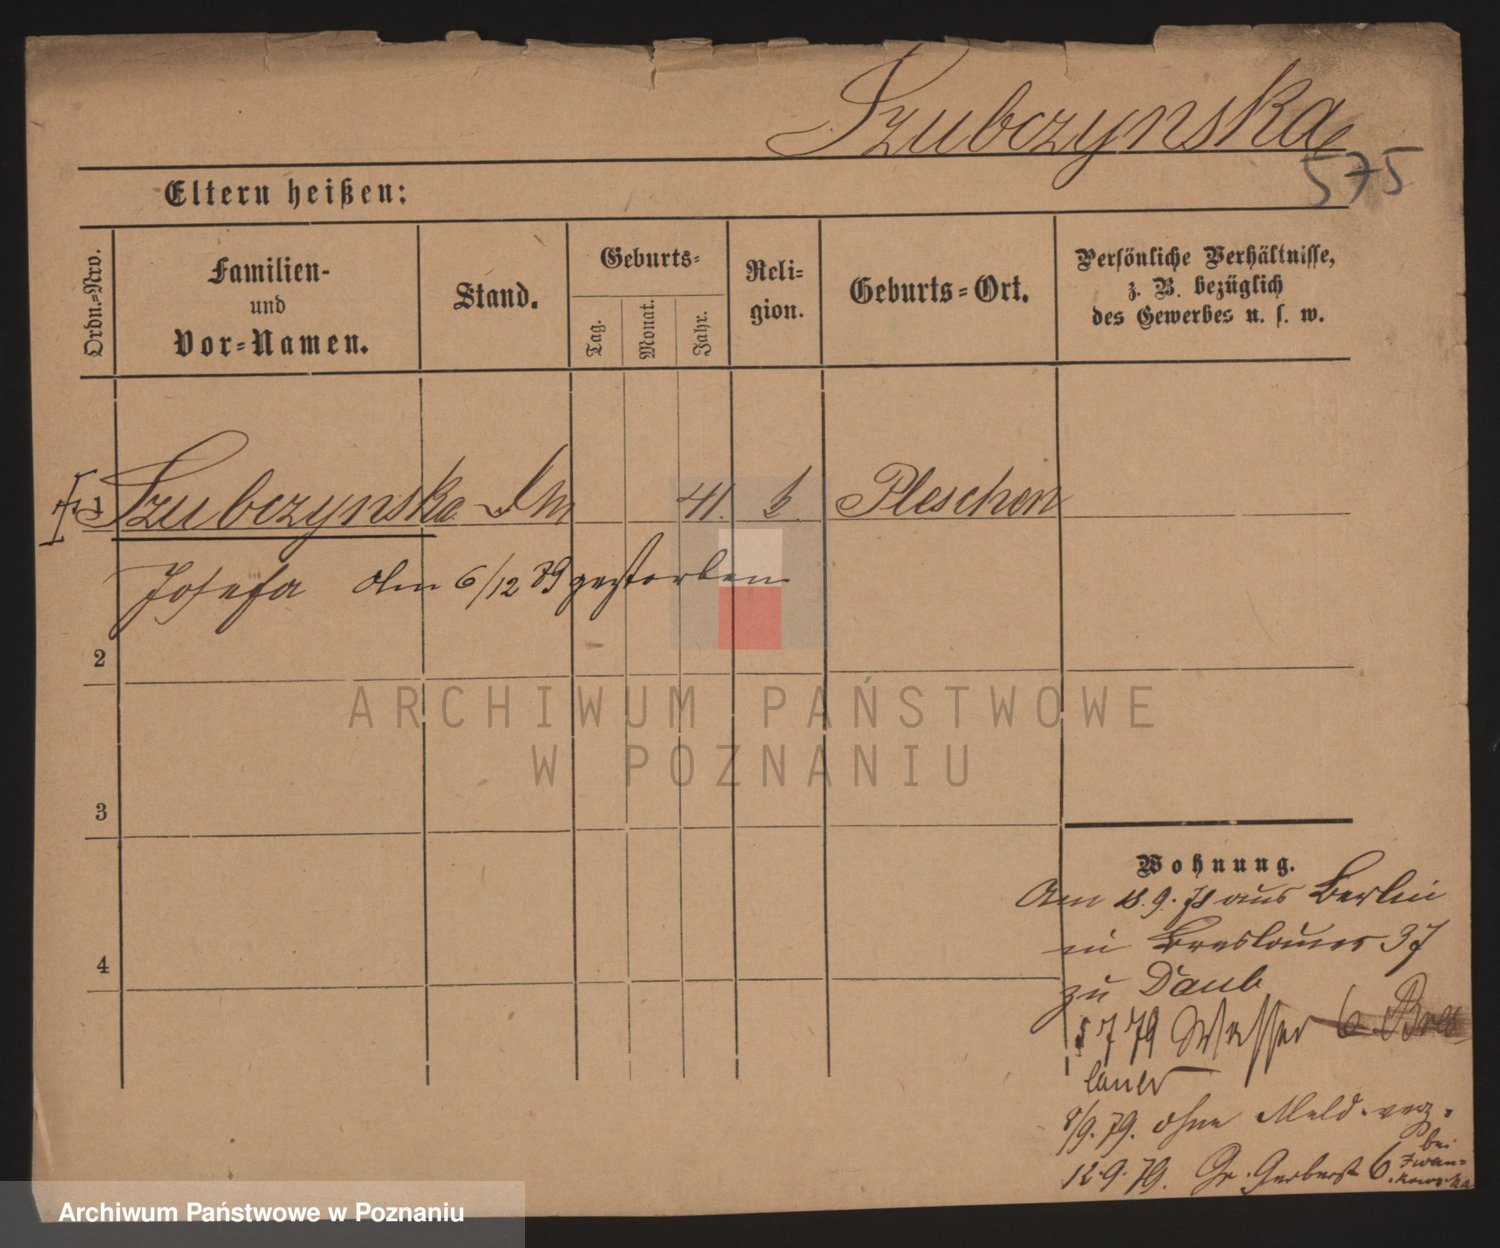 Szubczynska
575
Eltern heißen:
Ordn.=Nro.
Familien-
und
Vor=Namen.
Stand.
Geburts=
Tag.
Monat.
Jahr.
Reli=
gion.
Geburts=Ort.
Persönliche Verhältnisse,
z. B. bezüglich
des Gewerbes u. s. w.
1
Szubczynska
41.
k.
Pleschen
Josefa am 6/12 79 gestorben
2
3
4
Wohnung.
Am 18.9.78 aus Berlin
in Breslauer 37
zu Daub
5 7 79 Wasser 6 Bres
lauer
8/9. 79. ohne Meld. verz.
12.9.79. Gr. Gerberst 6 bei
Zwan=
kowska
ARCHIWUM PAŃSTWOWE
W POZNANIU
Archiwum Państwowe w Poznaniu